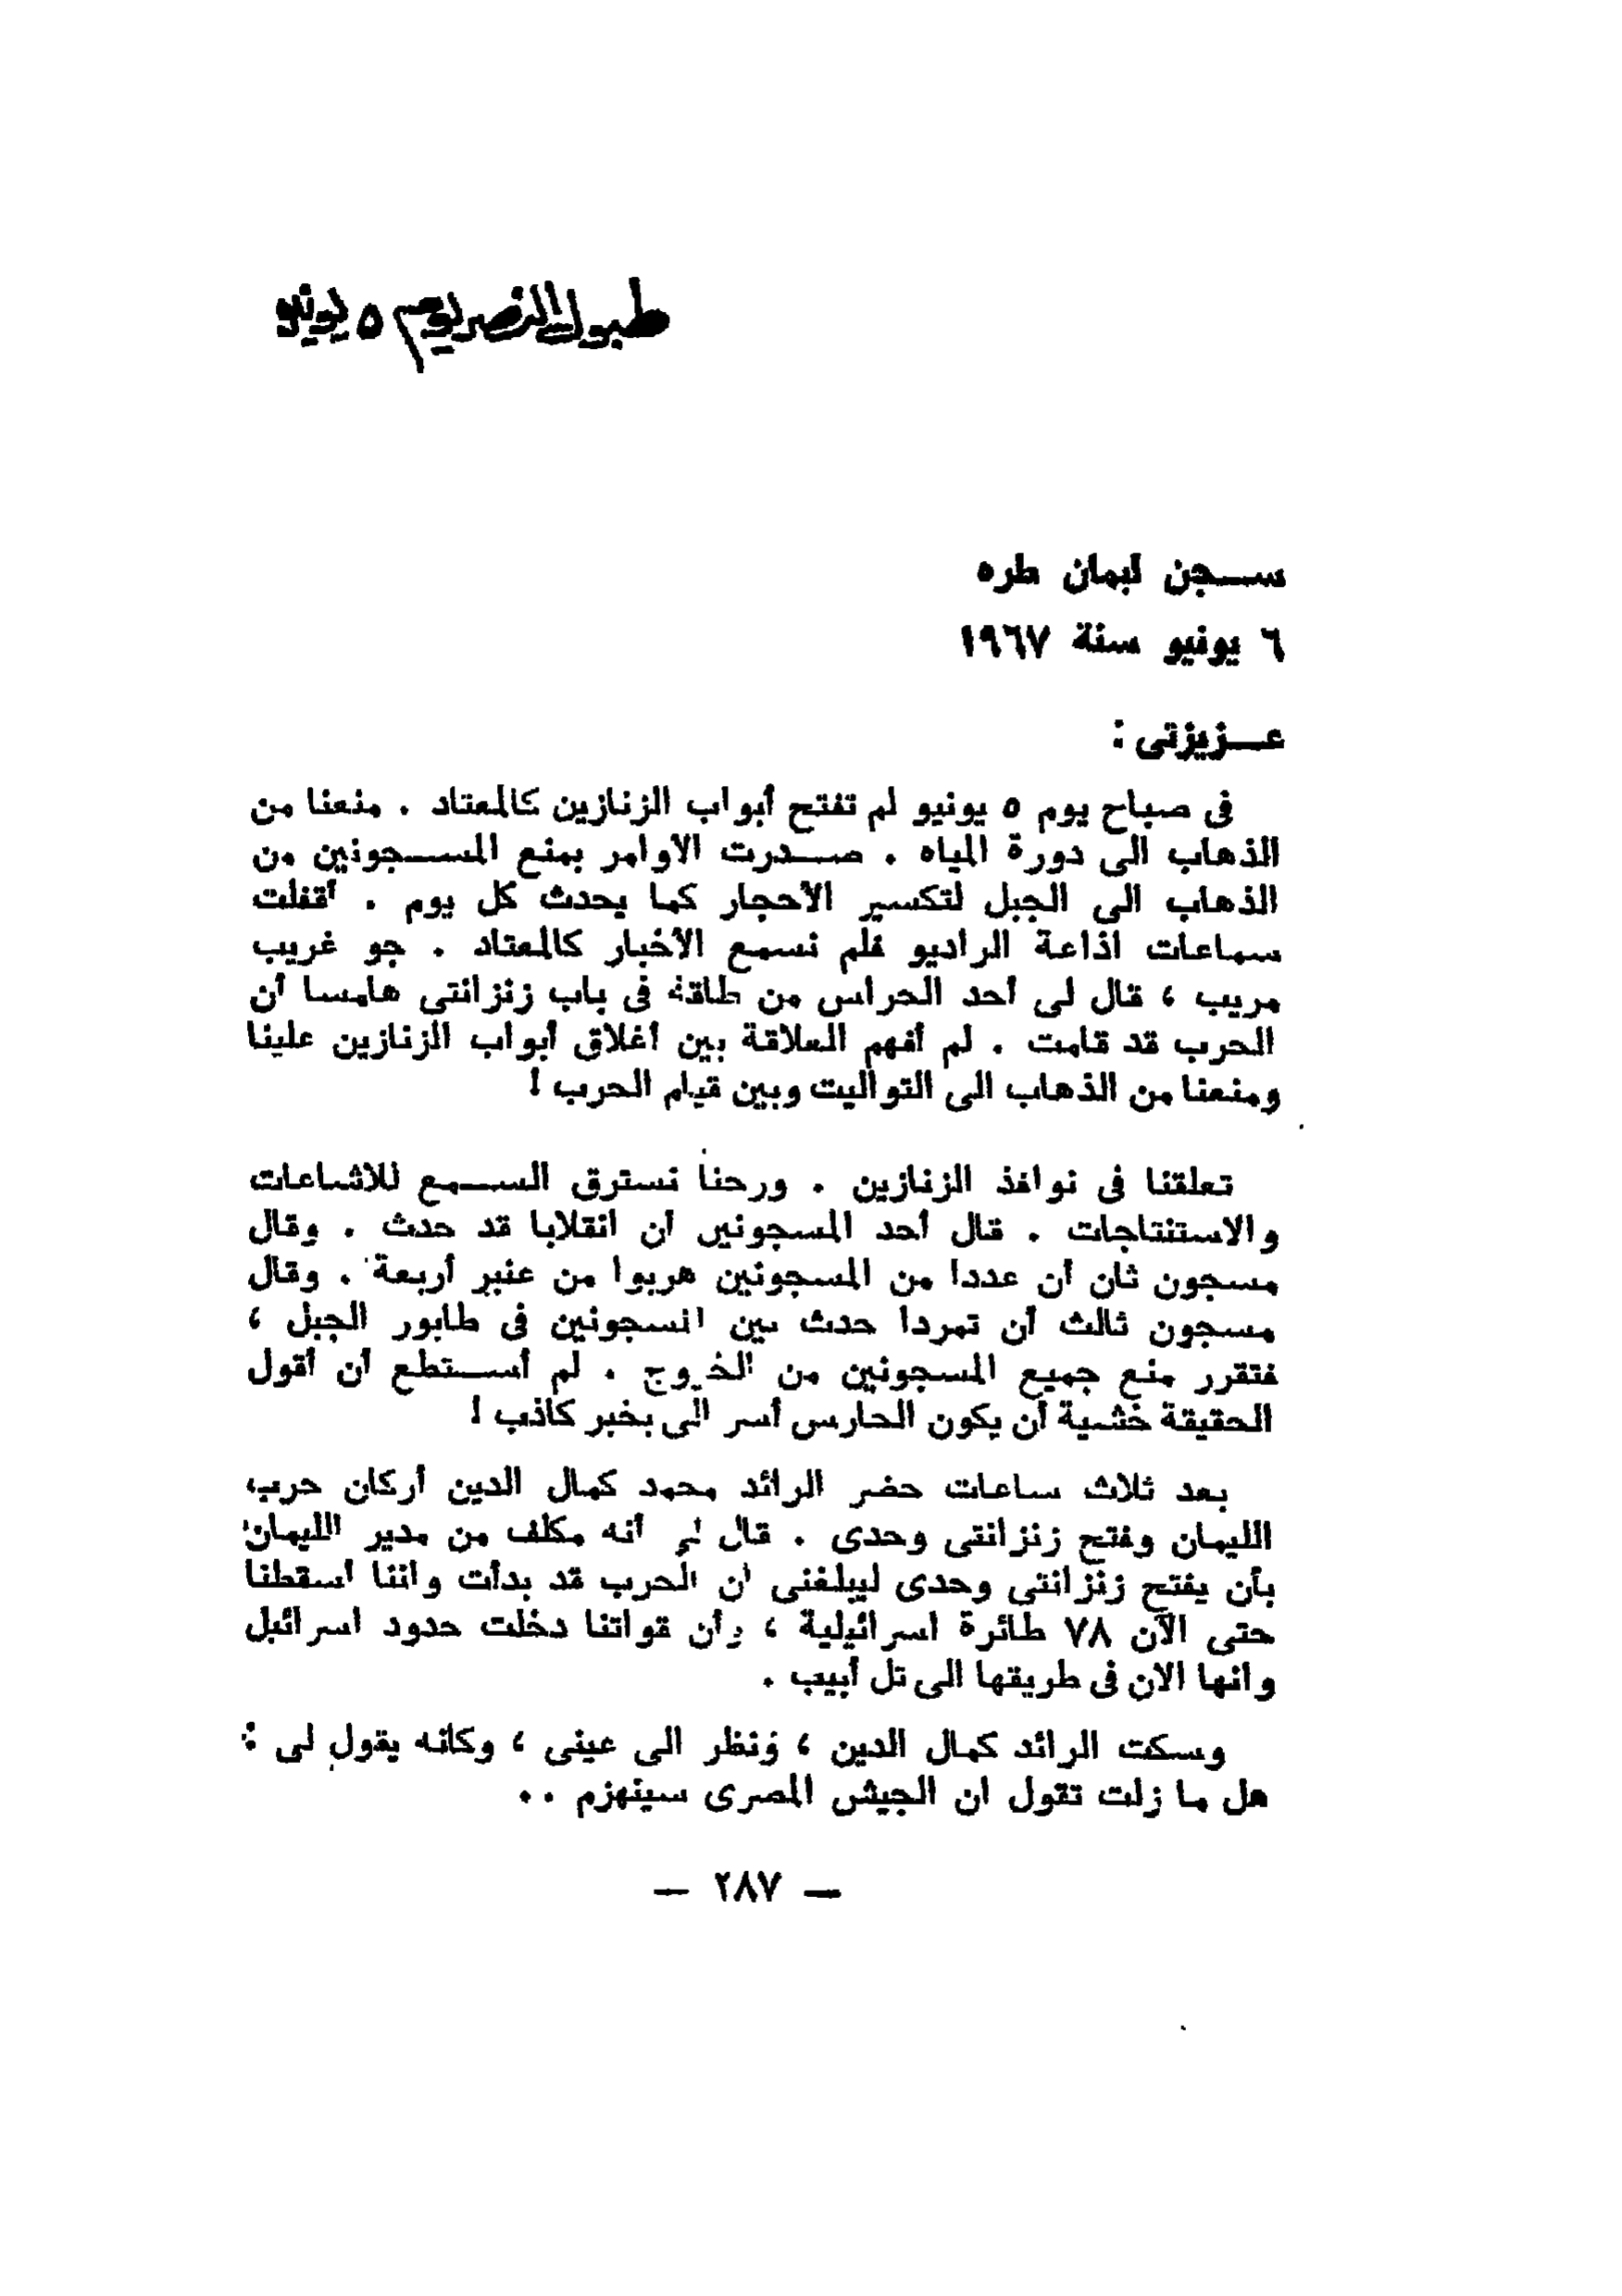 طبول النصر يوم ٥ يونيو
سجن ليمان طره
٦ يونيو سنة ١٩٦٧
عزيزتى :
فى صباح يوم ٥ يونيو لم تفتح أبواب الزنازين كالمعتاد . منعنا من
الذهاب الى دورة المياه . صدرت الاوامر بمنع المسجونين من
الذهاب الى الجبل لتكسير الأحجار كما يحدث كل يوم . أقفلت
سماعات اذاعة الراديو فلم نسمع الأخبار كالمعتاد . جو غريب
مريب ، قال لى أحد الحراس من طاقة فى باب زنزانتى هامسا أن
الحرب قد قامت . لم أفهم العلاقة بين اغلاق أبواب الزنازين علينا
ومنعنا من الذهاب الى التواليت وبين قيام الحرب !
تعلقنا فى نوافذ الزنازين . ورحنا نسترق السمع للاشاعات
والاستنتاجات . قال أحد المسجونين أن انقلابا قد حدث . وقال
مسجون ثان أن عددا من المسجونين هربوا من عنبر أربعة . وقال
مسجون ثالث أن تمردا حدث بين المسجونين فى طابور الجبل ،
فتقرر منع جميع المسجونين من الخروج . لم أستطع أن أقول
الحقيقة خشية أن يكون الحارس أسر الى بخبر كاذب !
بعد ثلاث ساعات حضر الرائد محمد كمال الدين أركان حرب
الليمان وفتح زنزانتى وحدى . قال لى أنه مكلف من مدير الليمان
بأن يفتح زنزانتى وحدى ليبلغنى أن الحرب قد بدأت واننا أسقطنا
حتى الآن ٧٨ طائرة اسرائيلية ، وأن قواتنا دخلت حدود اسرائيل
وانها الان فى طريقها الى تل أبيب .
وسكت الرائد كمال الدين ، ونظر الى عينى ، وكأنه يقول لى :
هل ما زلت تقول ان الجيش المصرى سينهزم ..
— ٢٨٧ —